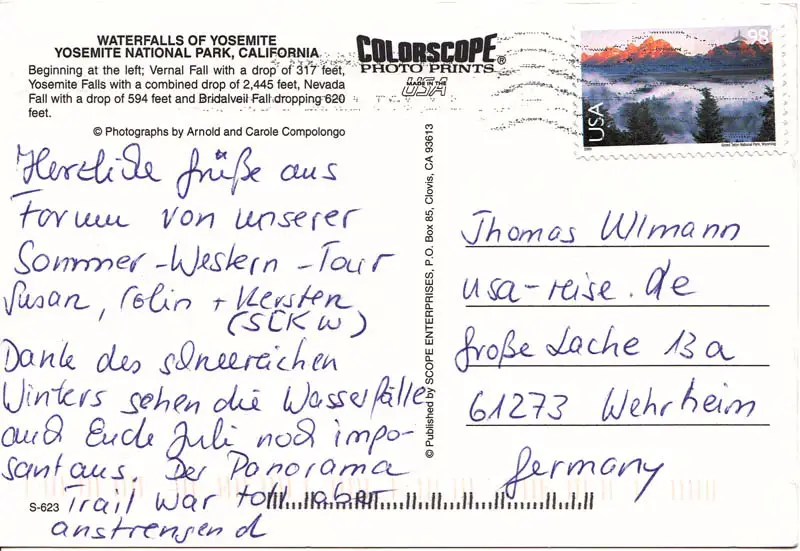 WATERFALLS OF YOSEMITE
YOSEMITE NATIONAL PARK, CALIFORNIA
Beginning at the left; Vernal Fall with a drop of 317 feet,
Yosemite Falls with a combined drop of 2,445 feet, Nevada
Fall with a drop of 594 feet and Bridalveil Fall dropping 620
feet.
© Photographs by Arnold and Carole Compolongo
COLORSCOPE®
PHOTO PRINTS
MADE IN THE
USA
98
USA
Grand Teton National Park, Wyoming
Herzliche Grüße aus
Forum von unserer
Sommer-Western-Tour
Susan, Colin + Kersten
(SCKW)
Danke des schneereichen
Winters sehen die Wasserfälle
auch Ende Juli noch impo-
sant aus. Der Panorama
Trail war toll aber
anstrengend
S-623
© Published by SCOPE ENTERPRISES, P.O. Box 85, Clovis, CA 93613
Thomas Wlmann
usa-reise.de
Große Lache 13a
61273 Wehrheim
Germany